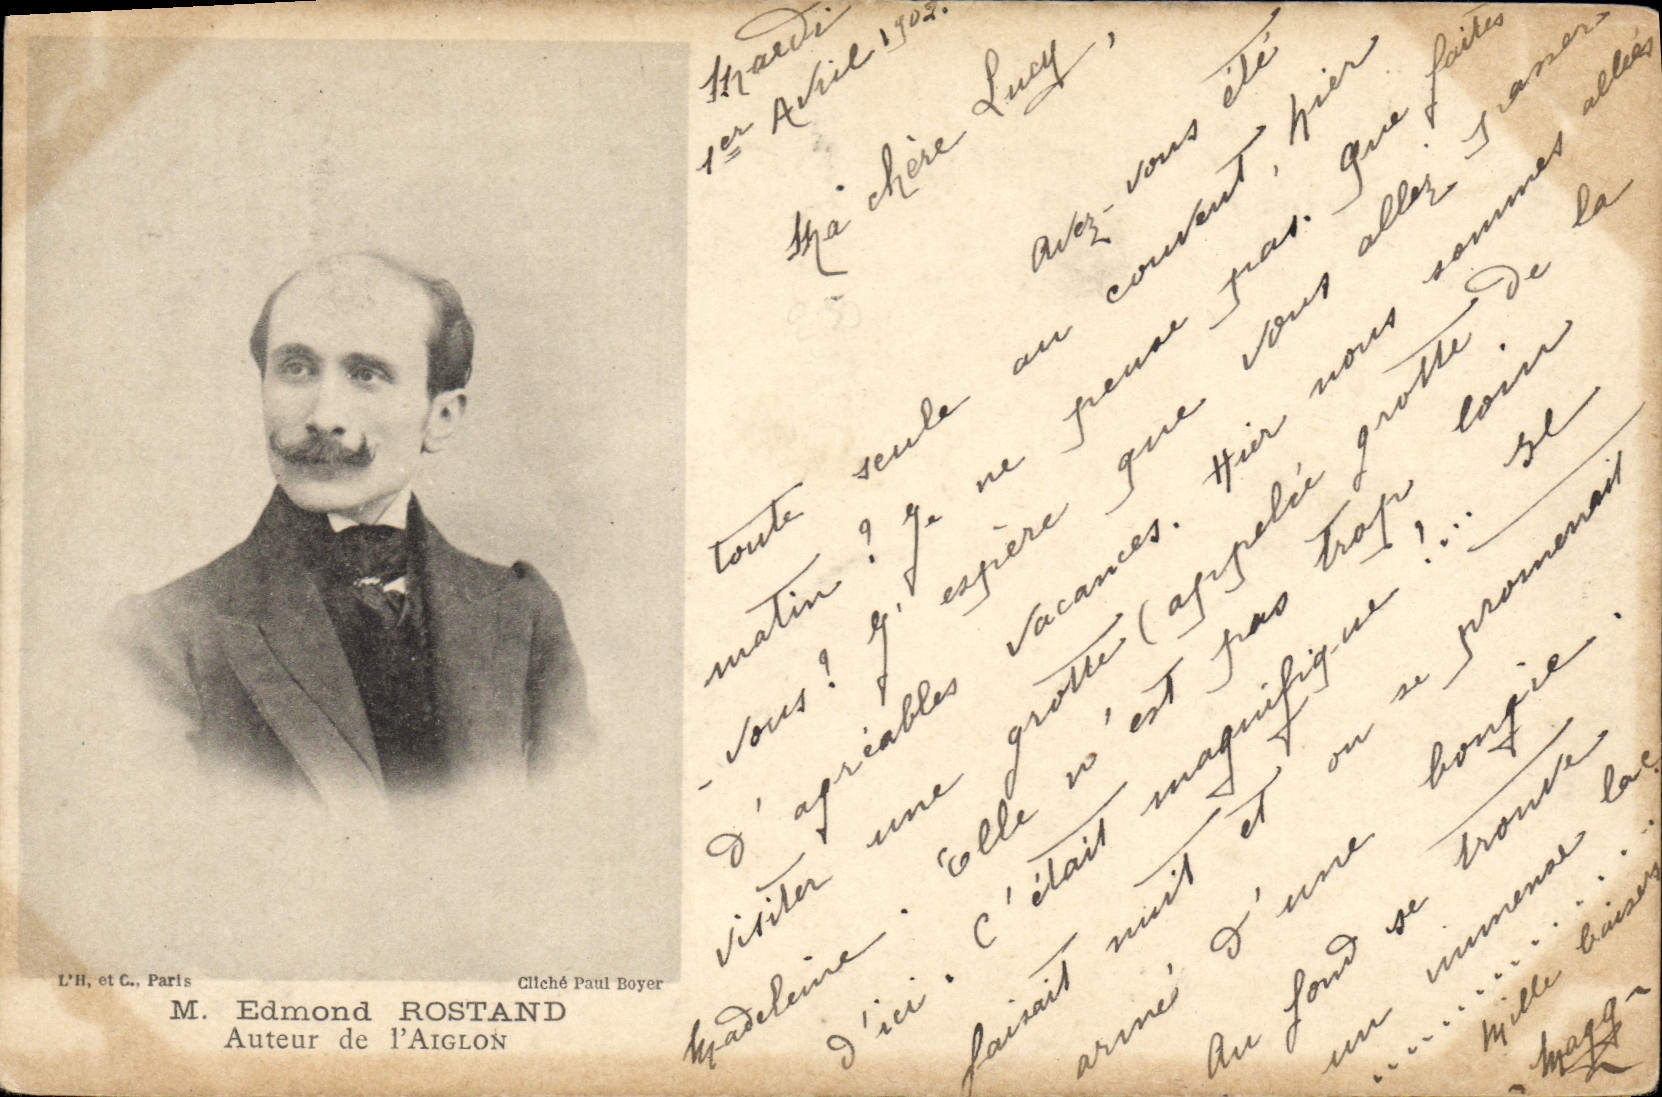 L'H, et C., Paris
Cliché Paul Boyer
M. Edmond ROSTAND
Auteur de l'AIGLON
Mardi
1er Avril 1902.
Ma chère Lucy,
Avez-vous été
toute seule au couvent, hier
matin? Je ne pense pas. Que faites
-vous? J'espère que vous allez passer
d'agréables vacances. Hier nous sommes allées
visiter une grotte (appelée grotte de la
Madeleine. Elle n'est pas trop loin
d'ici. C'était magnifique!... Il
faisait nuit et on se promenait
armé d'une bougie.
Au fond se trouve
un immense lac
Mille baisers
Magg